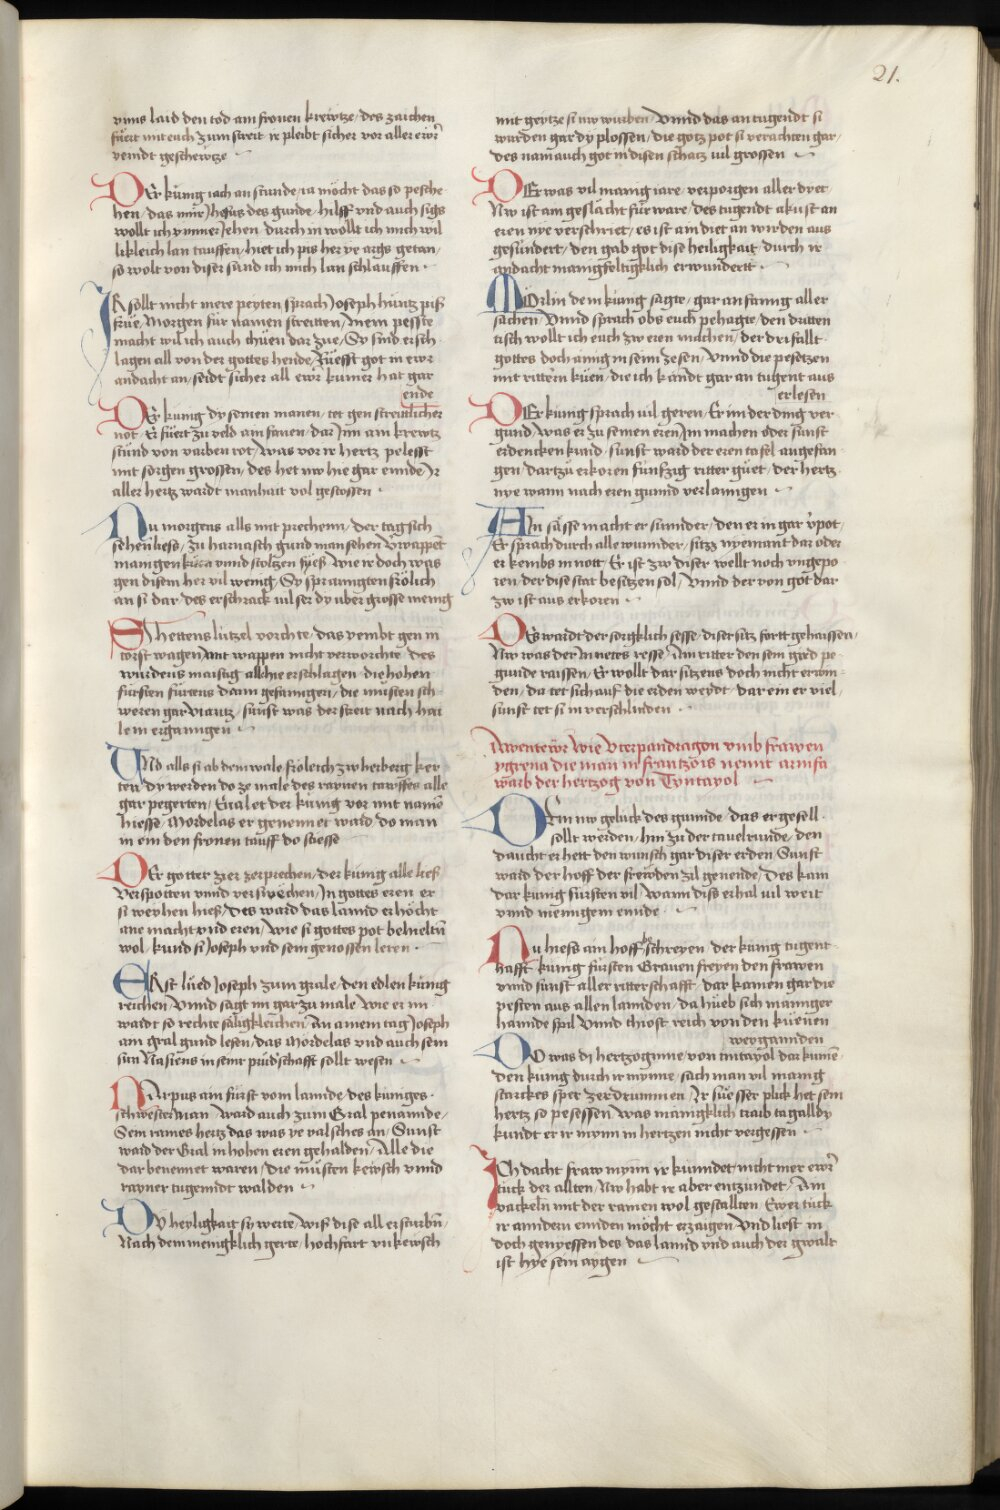 21.
vnns laid den tod am fronen krewtze / des zaichen
füert mit euch zum streit ir pleibt sicher vor aller ewr̄
veindt geschewtze
DEr künig iach an stunde / ia möcht das so pesche-
hen / das mir Jhesus des gunde / hilff vnd auch sigs
wollt ich ymmer Jehen / durch in wollt ich mich wil
likleich lan tauffen / hiet ich pis her ye args getan /
so wolt von diser sünd ich mich lan schlauffen
IR söllt nicht mere peyten sprach Joseph hüntz pis
früe / Morgen für namen streitten / Mein pesste
macht wil ich auch thüen dar zue / Sy sind ersch-
lagen all von der gottes hende / Rüefft got in ewr
andacht an / seidt sicher all ewr kumer hat gar
ende
DEr künig dy seinen manen / tet gen streittlicher
not / Er füert zu veld am fanen / dar Jnn am krewtz
stünd von varben rot / Was vor ir hertz pelesst
mit sorgen grossen / des het nw hie gar ennde Jr
aller hertz wardt manhait vol gestossen
NU morgens alls mit prechenn / der tag sich
sehen liess / zu harnasch gund man sehen Vwappent
manigen küen vnnd stoltzen fües Wie ir doch was
gen disem her vil wenig / Sy spranngten frölich
an si dar / des erschrack vil ser dy uber grosse menig
SY hettens lützel vorchte / das veinbt gen in
torst wagen / mit wappen nicht verworchte / des
würdens maistig allhie erschlagen / die hohen
fürsten fürtens dann gefanngen / die müsten sich
weren gar vianntz / sunst was der streit nach hai
lem erganngen
VNd alls si ab dem wale froleich zw herberg ker
ten / Dy werden do ze male des raynen tawffes alle
gar pegerten / Eualet der künig vor mit name
hiesse / Mordelas er genennet ward do man
in ein den fronen tauff do stiesse
DEr gotter zier zerprechen / der künig alle hiess
Verspotten vnnd verswechen / Jn gottes eren er
si weyhen hiess / Des ward das lannd erhöcht
ane macht vnd eren / Wie si gottes pot behieltn̄
wol / kund si Joseph vnd sein genossen leren
ERst lüed Joseph zum grale / den edlen künig
reichen / Vnnd sagt im gar zu male wie er im
wardt so rechte säligkleichen / An ainem tag Joseph
am gral gund lesen / das Mordelas vnd auch sein
sun Nasiens in seinr prüd schafft sollt wesen
NArpus ain fürst vom lannde / des küniges
schwester man / Ward auch zum Gral penannde /
Sein raines hertz das was ye valsches an / Sunst
ward der Gral in hohen eren gehalden / Alle die
dar benennet waren / die müsten kewsch vnnd
rayner tugenndt walden
DY heyligkait sy werte / wiss dise all ersturbn̄ /
Nach dem menigklich gerte / hochfart vnkewsch
mit geytze si nw wurben / Vnnd das an tugendt si
wurden gar dy plossen / die gotz pot si verachten gar /
des nam auch got in disen schatz vil grossen
DEr was vil manig iare / verporgen aller dyet
Nw ist am geslächt für ware / des tugendt akust an
eren nye verschriet / es ist am diet an wirden aus
gesündert / den gab got dise heiligkait / durch ir
andacht manigfeltigklich erwundertt
MOrlin dem künig sagte / gar an fanng aller
sachen / Vnnd sprach obs euch pehagte / den dritten
tisch wollt ich euch zw eren machen / der drifallt
gottes doch ainig in seim zesen / Vnnd die pesetzen
mit rittern küen / die ich kändt gar an tugent aus
erlesen
DEr künig sprach vil geren / Er im der ding ver
gund / was er zu seinen eren Jm machen oder sunst
erdencken kund / sunst ward der eren tafel angefan-
gen / dartzu erkoren fünfzig ritter güet / der hertz
nye wann nach eren gunnd verlanngen
AIn sässe macht er sunnder / den er in gar v̈pot /
Er sprach durch alle wunnder / sitzz nyemant dar oder
er kembs in nott / Er ist zw diser wellt noch vngepo
ren / der dise stat besitzen sol / Vnnd der von got dar
zw ist aus erkoren
DEs wardt der sorgklich sesse / diser sitz fortt gehaissen /
Nw was der in neres vesse Ain ritter den sein gird pe
gunde raissen / Er wollt dar sitzens doch nicht erwin-
den / da tet sich auf die erden weydt / dar ein er viel /
sunst tet si in verschlinden
Awentewr wie Vterpandragon vmb frawen
ygrena die man in frantzois nennt arnifa
warb der hertzog von Tyntayol
DEm nw gelück des gunnde / das er gesell
sollt werden / hin zu der tauelrunde / den
daucht er hett den wunsch gar diser erden Sunst
ward der hoff der frewden zil genende / Des kam
dar künig fürsten vil / Wann diss erhal vil weit
vnnd menigem ennde
NU hiess am hoff schreyen / der künig tugent
hafft / künig fürsten Grauen freyen den frawen
vnnd sunst aller ritterschafft / dar kamen gar die
pesten aus allen lannden / da hüeb sich manniger
hannde spil Vnnd thiost reich von den küenen
weyganden
DO was dy hertzoginne von tintayol dar kumē /
den künig durch ir mynne / sach man vil manig
starckes sper zerdrummen / Jr süesser plick het sein
hertz so pesessen / was manigklich traib tagalldy
kundt er ir mynn in hertzen nicht vergessen
ICh dacht fraw mynn ir künndet / nicht mer ewr̄
tück der allten / Nw habt ir aber entzündet / Ain
vackeln mit der ramen wol gestallten / Ewer tück
ir anndern ennden möcht erzaigen / Vnd liest in
doch genyessen des / das lannd vnd auch der gwalt
ist hye sein aygen